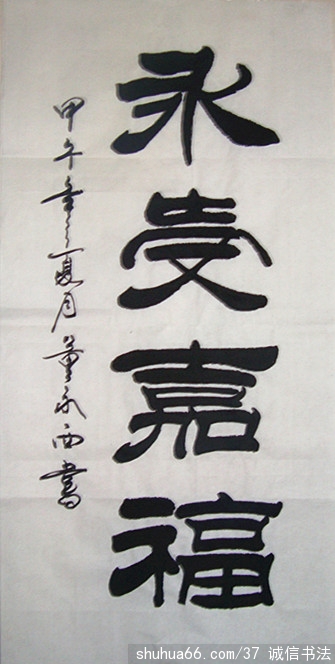 永受嘉福
甲午年夏月
書
shuhua66.com/37 诚信书法